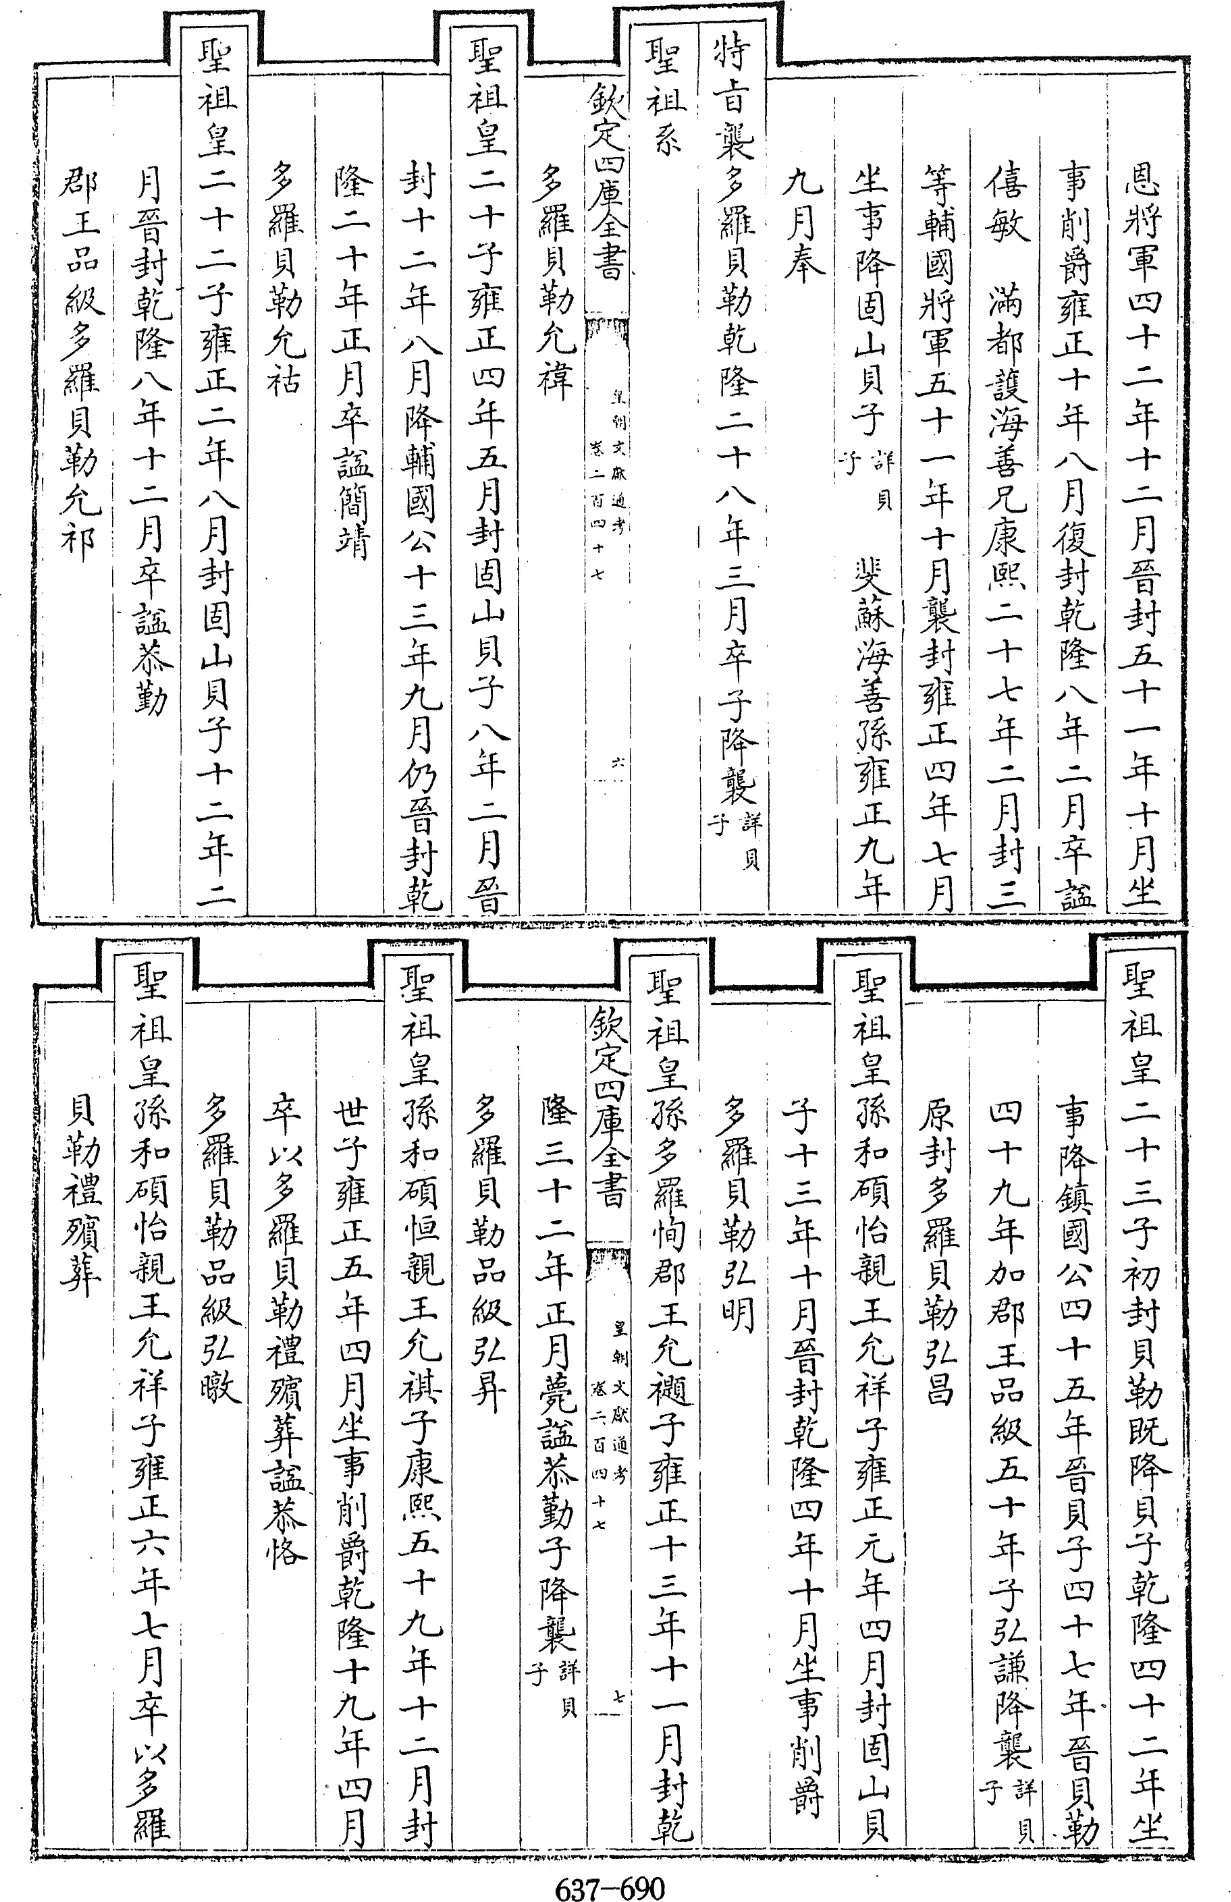 恩將軍四十二年十二月晉封五十一年十月坐
事削爵雍正十年八月復封乾隆八年二月卒諡
僖敏　滿都護海善兄康熙二十七年二月封三
等輔國將軍五十一年十月襲封雍正四年七月
坐事降固山貝子詳貝子　斐蘇海善孫雍正九年
九月奉
特旨襲多羅貝勒乾隆二十八年三月卒子降襲詳貝子
聖祖系
欽定四庫全書　皇朝文獻通考卷二百四十七　六
多羅貝勒允禕
聖祖皇二十子雍正四年五月封固山貝子八年二月晉
封十二年八月降輔國公十三年九月仍晉封乾
隆二十年正月卒諡簡靖
多羅貝勒允祜
聖祖皇二十二子雍正二年八月封固山貝子十二年二
月晉封乾隆八年十二月卒諡恭勤
郡王品級多羅貝勒允祁
聖祖皇二十三子初封貝勒既降貝子乾隆四十二年坐
事降鎮國公四十五年晉貝子四十七年晉貝勒
四十九年加郡王品級五十年子弘謙降襲詳貝子
原封多羅貝勒弘昌
聖祖皇孫和碩怡親王允祥子雍正元年四月封固山貝
子十三年十月晉封乾隆四年十月坐事削爵
多羅貝勒弘明
聖祖皇孫多羅恂郡王允禵子雍正十三年十一月封乾
欽定四庫全書　皇朝文獻通考卷二百四十七　七
隆三十二年正月薨諡恭勤子降襲詳貝子
多羅貝勒品級弘昇
聖祖皇孫和碩恒親王允祺子康熙五十九年十二月封
世子雍正五年四月坐事削爵乾隆十九年四月
卒以多羅貝勒禮殯葬諡恭恪
多羅貝勒品級弘暾
聖祖皇孫和碩怡親王允祥子雍正六年七月卒以多羅
貝勒禮殯葬
637-690